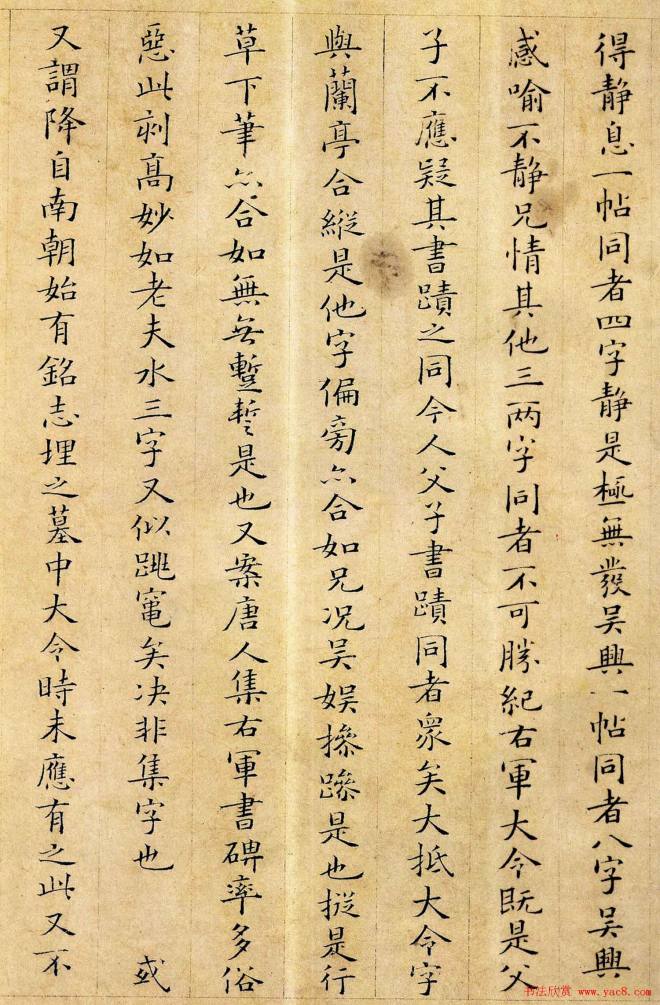 得静息一帖同者四字静是極無發吴興一帖同者八字吴興
感喻不静兄情其他三两字同者不可勝紀右軍大令既是父
子不應疑其書蹟之同今人父子書蹟同者衆矣大抵大令字
與蘭亭合縱是他字偏旁亦合如兄况吴娱摻蹤是也摐是行
草下筆亦合如無無蹔是也又案唐人集右軍書碑率多俗
惡此剥髙妙如老夫水三字又似跳竃矣决非集字也 或
又謂降自南朝始有銘志埋之墓中大令時未應有之此又不
书法欣赏 www.yac8.com